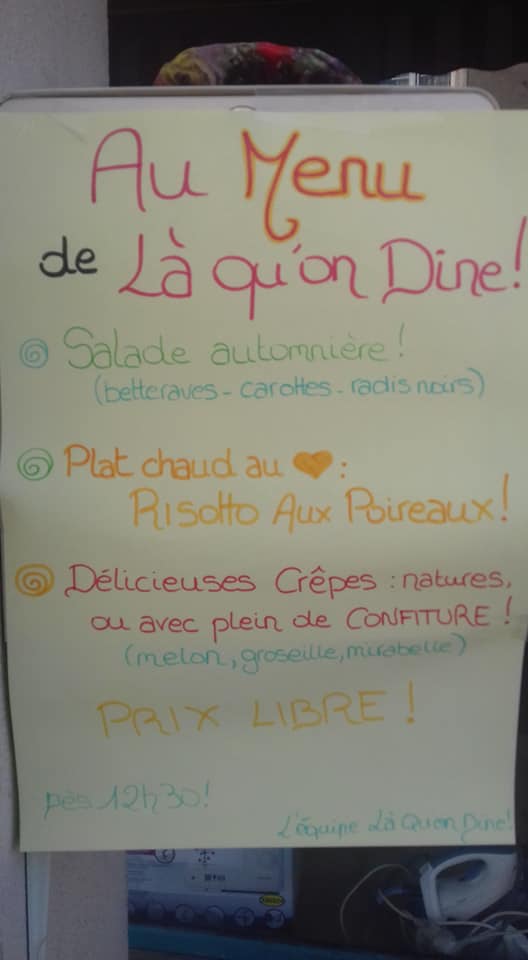 Au Menu
de Là qu'on Dine!
Salade automnière!
(betteraves - carottes - radis noirs)
Plat chaud au ♥:
Risotto Aux Poireaux!
Délicieuses Crêpes : natures,
ou avec plein de CONFITURE !
(melon, groseille, mirabelle)
PRIX LIBRE !
Dès 12h30!
L'équipe Là Quon Dine!